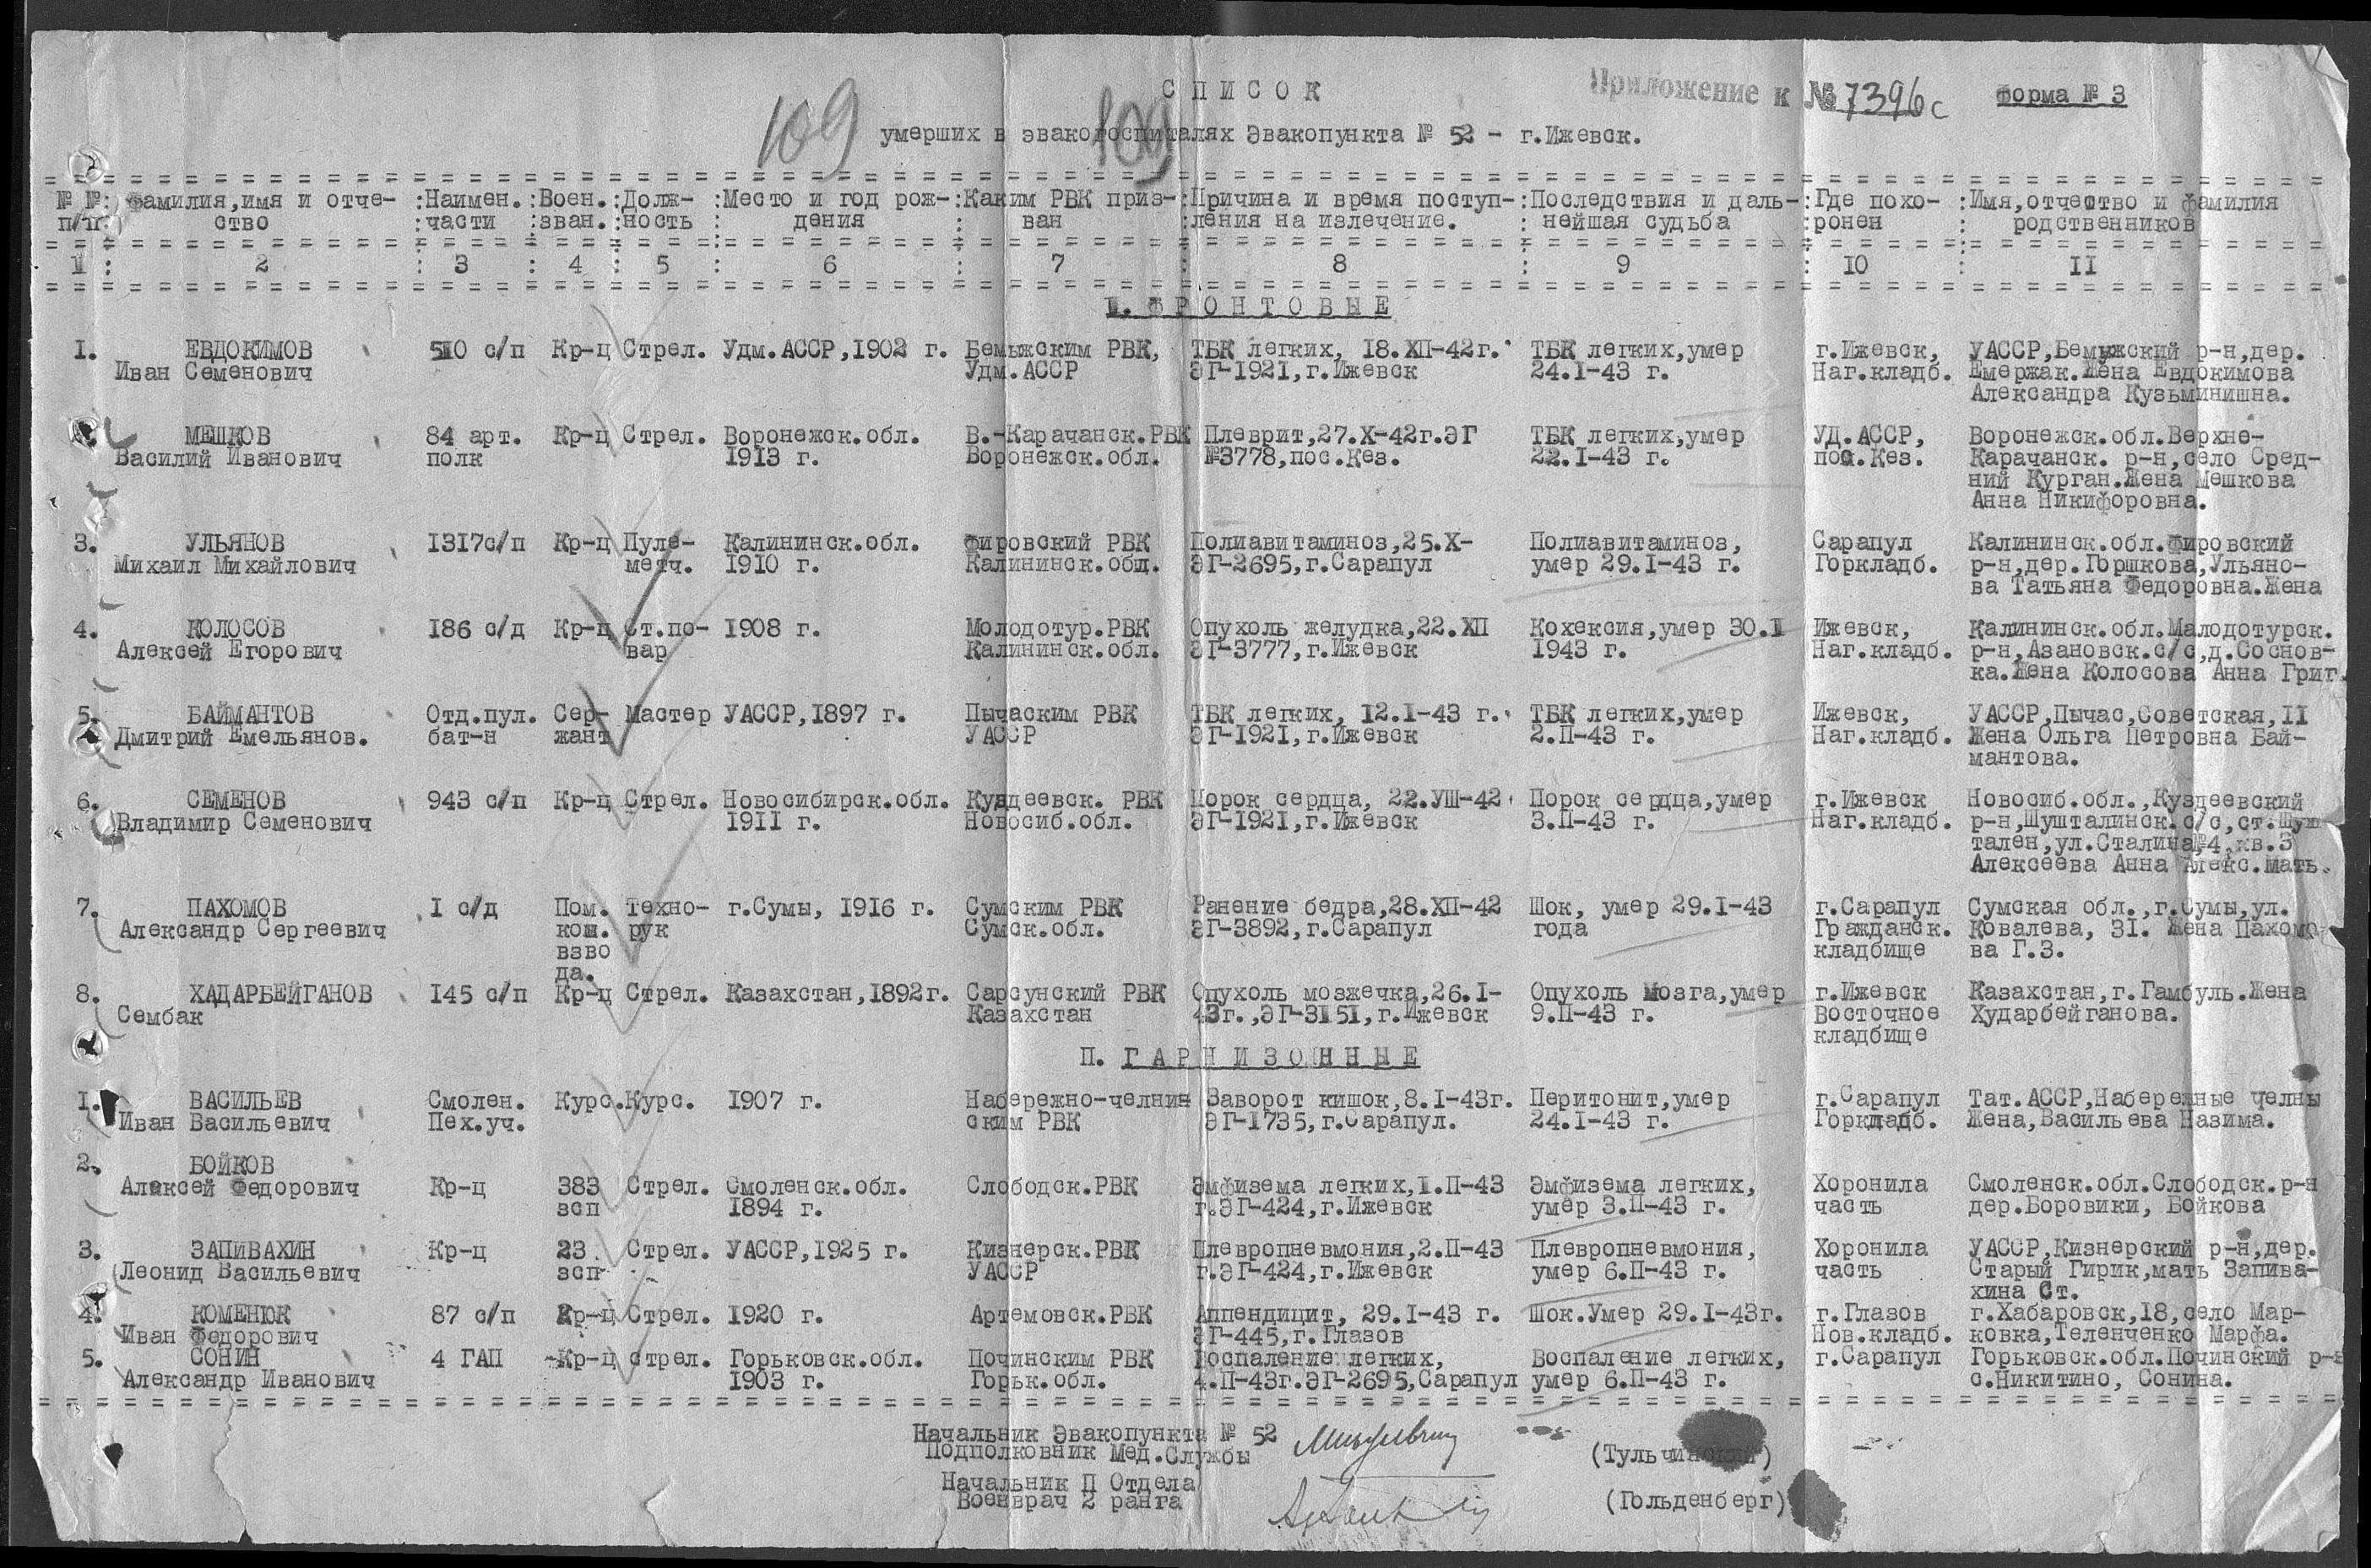 СПИСОК
Приложение к № 7396с
Форма № 3
109 109
умерших в эвакогоспиталях Эвакопункта № 52 - г.Ижевск.
№ №: Фамилия,имя и отче- :Наимен.:Воен.:Долж- :Место и год рож-:Каким РВК приз-:Причина и время поступ-:Последствия и даль-:Где похо- :Имя,отчество и фамилия
п/п: ство :части :зван.:ность : дения : ван :ления на излечение. : нейшая судьба :ронен : родственников
1 : 2 : 3 : 4 : 5 : 6 : 7 : 8 : 9 : 10 : II
I. ФРОНТОВЫЕ
I. ЕВДОКИМОВ 510 с/п Кр-ц Стрел. Удм.АССР,1902 г. Бемыжским РВК, ТБК легких, 18.ХП-42г. ТБК легких,умер г.Ижевск, УАССР,Бемыжский р-н,дер.
Иван Семенович Удм.АССР ЭГ-1921,г.Ижевск 24.I-43 г. Наг.кладб. Емержак.Жена Евдокимова
Александра Кузьминишна.
МЕШКОВ 84 арт. Кр-ц Стрел. Воронежск.обл. В.-Карачанск.РВК Плеврит,27.Х-42г.ЭГ ТБК легких,умер УД.АССР, Воронежск.обл.Верхне-
Василий Иванович полк 1913 г. Воронежск.обл. №3778,пос.Кез. 22.I-43 г. пос.Кез. Карачанск. р-н,село Сред-
ний Курган.Жена Мешкова
Анна Никифоровна.
3. УЛЬЯНОВ 1317с/п Кр-ц Пуле- Калининск.обл. Фировский РВК Полиавитаминоз,25.Х- Полиавитаминоз, Сарапул Калининск.обл.Фировский
Михаил Михайлович метч. 1910 г. Калининск.общ. ЭГ-2695,г.Сарапул умер 29.I-43 г. Горкладб. р-н,дер.Горшкова,Ульяно-
ва Татьяна Федоровна.Жена
4. КОЛОСОВ 186 с/д Кр-ц Ст.по- 1908 г. Молодотур.РВК Опухоль желудка,22.ХП Кохексия,умер 30.I Ижевск, Калининск.обл.Малодотурск.
Алексей Егорович вар Калининск.обл. ЭГ-3777,г.Ижевск 1943 г. Наг.кладб. р-н,Азановск.с/с,д.Соснов-
ка.Жена Колосова Анна Григ.
5. БАЙМАНТОВ Отд.пул. Сер- Мастер УАССР,1897 г. Пычаским РВК ТБК легких, 12.I-43 г. ТБК легких,умер Ижевск, УАССР,Пычас,Советская,II
Дмитрий Емельянов. бат-н жант УАССР ЭГ-1921,г.Ижевск 2.П-43 г. Наг.кладб. Жена Ольга Петровна Бай-
мантова.
6. СЕМЕНОВ 943 с/п Кр-ц Стрел. Новосибирск.обл. Куздеевск. РВК Порок сердца, 22.УШ-42 Порок сердца,умер г.Ижевск Новосиб.обл.,Куздеевский
Владимир Семенович 1911 г. Новосиб.обл. ЭГ-1921,г.Ижевск 3.П-43 г. Наг.кладб. р-н,Шушталинск.с/с,ст.Шуш
тален,ул.Сталина,№4,кв.3
Алексеева Анна Алекс.мать.
7. ПАХОМОВ I с/д Пом. техно- г.Сумы, 1916 г. Сумским РВК Ранение бедра,28.ХП-42 Шок, умер 29.I-43 г.Сарапул Сумская обл.,г.Сумы,ул.
Александр Сергеевич ком. рук Сумск.обл. ЭГ-3892,г.Сарапул года Гражданск. Ковалева, 31. Жена Пахомо-
взво кладбище ва Г.З.
да.
8. ХАДАРБЕЙГАНОВ 145 с/п Кр-ц Стрел. Казахстан,1892г. Сарсунский РВК Опухоль мозжечка,26.I- Опухоль мозга,умер г.Ижевск Казахстан,г.Гамбуль.Жена
Сембак Казахстан 43г.,ЭГ-3151,г.Ижевск 9.П-43 г. Восточное Хударбейганова.
кладбище
П. ГАРНИЗОННЫЕ
I. ВАСИЛЬЕВ Смолен. Курс.Курс. 1907 г. Набережно-челнин Заворот кишок,8.I-43г. Перитонит,умер г.Сарапул Тат.АССР,Набережные челны
Иван Васильевич Пех.уч. ским РВК ЭГ-1735,г.Сарапул. 24.I-43 г. Горкладб. Жена,Васильева Назима.
2. БОЙКОВ
Алексей Федорович Кр-ц 383 Стрел. Смоленск.обл. Слободск.РВК Эмфизема легких,I.П-43 Эмфизема легких, Хоронила Смоленск.обл.Слободск.р-н
зсп 1894 г. г.ЭГ-424,г.Ижевск умер 3.П-43 г. часть дер.Боровики, Бойкова
3. ЗАПИВАХИН Кр-ц 23 Стрел. УАССР,1925 г. Кизнерск.РВК Плевропневмония,2.П-43 Плевропневмония, Хоронила УАССР,Кизнерский р-н,дер.
Леонид Васильевич зсп УАССР г.ЭГ-424,г.Ижевск умер 6.П-43 г. часть Старый Гирик,мать Запива-
хина Ст.
4. КОМЕНЮК 87 с/п Кр-ц Стрел. 1920 г. Артемовск.РВК Аппендицит, 29.I-43 г. Шок.Умер 29.I-43г. г.Глазов г.Хабаровск,18,село Мар-
Иван Федорович ЭГ-445,г.Глазов Нов.кладб. ковка,Теленченко Марфа.
5. СОНИН 4 ГАП Кр-ц стрел. Горьковск.обл. Починским РВК Воспаление легких, Воспаление легких, г.Сарапул Горьковск.обл.Починский р-н
Александр Иванович 1903 г. Горьк.обл. 4.П-43г.ЭГ-2695,Сарапул умер 6.П-43 г. с.Никитино, Сонина.
Начальник Эвакопункта № 52
Подполковник Мед.Службы (Тульчинский)
Начальник П Отдела
Военврач 2 ранга (Гольденберг)